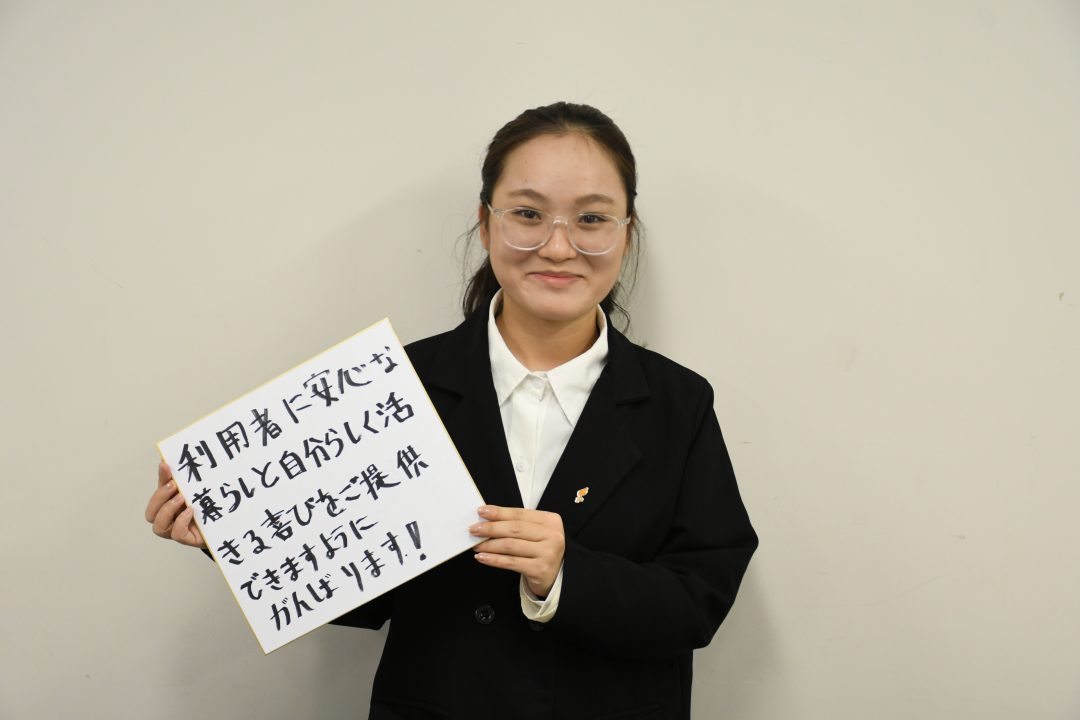 利用者に安心な
暮らしと自分らしく活
きる喜びをご提供
できますように
がんばります!